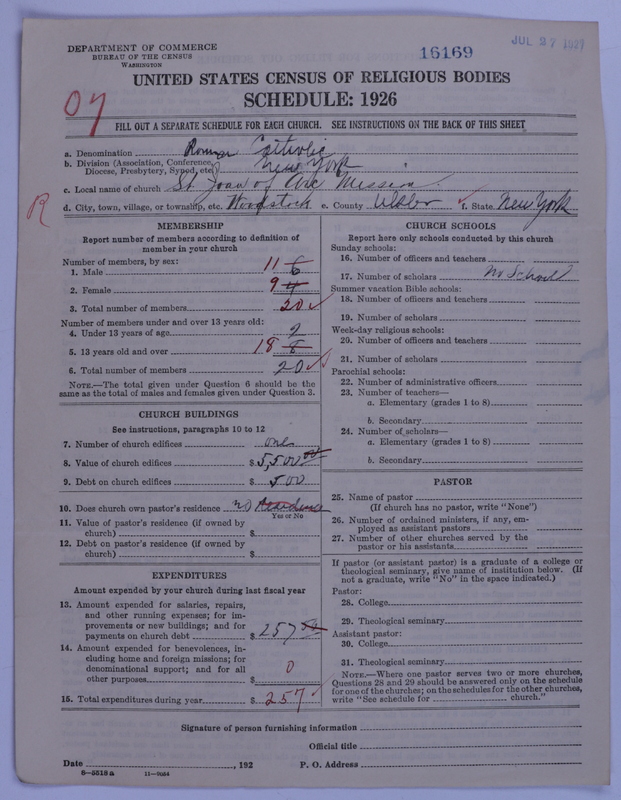 DEPARTMENT OF COMMERCE
BUREAU OF THE CENSUS
WASHINGTON
16169
JUL 27 1927
UNITED STATES CENSUS OF RELIGIOUS BODIES
SCHEDULE: 1926
07
FILL OUT A SEPARATE SCHEDULE FOR EACH CHURCH. SEE INSTRUCTIONS ON THE BACK OF THIS SHEET
a. Denomination Roman Catholic
b. Division (Association, Conference, Diocese, Presbytery, Synod, etc.) New York
c. Local name of church St Joan of Arc Mission
R
d. City, town, village, or township, etc. Woodstock e. County Ulster f. State New York
MEMBERSHIP
Report number of members according to definition of
member in your church
Number of members, by sex:
1. Male 11 6
2. Female 9 4
3. Total number of members 20
Number of members under and over 13 years old:
4. Under 13 years of age 2
5. 13 years old and over 18 8
6. Total number of members 20
NOTE.—The total given under Question 6 should be the
same as the total of males and females given under Question 3.
CHURCH BUILDINGS
See instructions, paragraphs 10 to 12
7. Number of church edifices one
8. Value of church edifices $ 5,500 00
9. Debt on church edifices $ 500
10. Does church own pastor's residence no Residence
Yes or No
11. Value of pastor's residence (if owned by
church) $
12. Debt on pastor's residence (if owned by
church) $
EXPENDITURES
Amount expended by your church during last fiscal year
13. Amount expended for salaries, repairs,
and other running expenses; for im-
provements or new buildings; and for
payments on church debt $ 257
14. Amount expended for benevolences, in-
cluding home and foreign missions; for
denominational support; and for all
other purposes $ 0
15. Total expenditures during year $ 257
CHURCH SCHOOLS
Report here only schools conducted by this church
Sunday schools:
16. Number of officers and teachers
17. Number of scholars No School
Summer vacation Bible schools:
18. Number of officers and teachers
19. Number of scholars
Week-day religious schools:
20. Number of officers and teachers
21. Number of scholars
Parochial schools:
22. Number of administrative officers
23. Number of teachers—
a. Elementary (grades 1 to 8)
b. Secondary
24. Number of scholars—
a. Elementary (grades 1 to 8)
b. Secondary
PASTOR
25. Name of pastor
(If church has no pastor, write "None")
26. Number of ordained ministers, if any, em-
ployed as assistant pastors
27. Number of other churches served by the
pastor or his assistants
If pastor (or assistant pastor) is a graduate of a college or
theological seminary, give name of institution below. (If
not a graduate, write "No" in the space indicated.)
Pastor:
28. College
29. Theological seminary
Assistant pastor:
30. College
31. Theological seminary
NOTE.—Where one pastor serves two or more churches,
Questions 28 and 29 should be answered only on the schedule
for one of the churches; on the schedules for the other churches,
write "See schedule for church."
Signature of person furnishing information
Official title
Date , 192 P. O. Address
8-5518a 11-9054